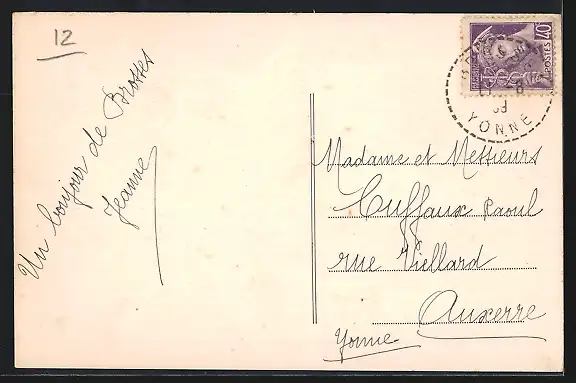 12
Un bonjour de Brosses
Jeanne
40c
POSTES
YONNE
Madame et Messieurs
Cuffaux Raoul
rue Viellard
Auxerre
Yonne